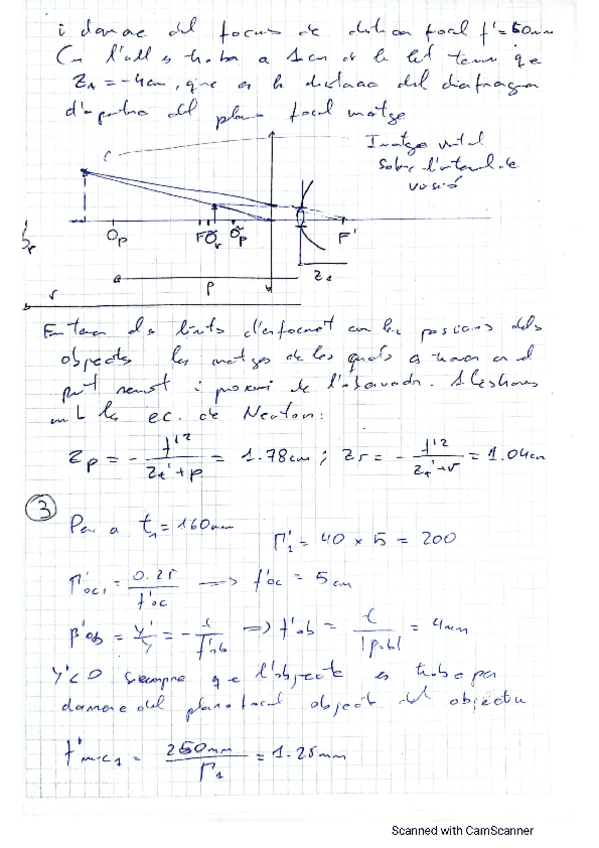 i damunt del focus de distància focal f' = 50mm
Com l'ull es troba a 1cm de la lent tenim que
z₁ = -4cm, que es la distància del diafragma
d'apertura del plano focal imatge
Imatge virtual
sobre l'interval de
visió
Op F Õr Õp F'
z₁
p
r
els límits d'enfocament com les posicions dels
objectes les imatges de les quals es troven en el
punt remot i proxim de l'observador. Aleshores
amb les ec. de Newton:
zp = - f'² / (z₁' + p) = 1.78cm ; zr = - f'² / (z₁' + r) = 1.04cm
③
Per a t₁ = 160mm
Γ'₁ = 40 × 5 = 200
Γ'oc₁ = 0.25 / f'oc ⟹ f'oc = 5cm
β'ob = y'/y = - t / f'ob ⟹ f'ob = t / |βob| = 4mm
y' < 0 siempre que l'objecte es trobe per
damunt del plano focal objecte del objectiu
f'mic₁ = 250mm / Γ₁ = 1.25mm
Scanned with CamScanner